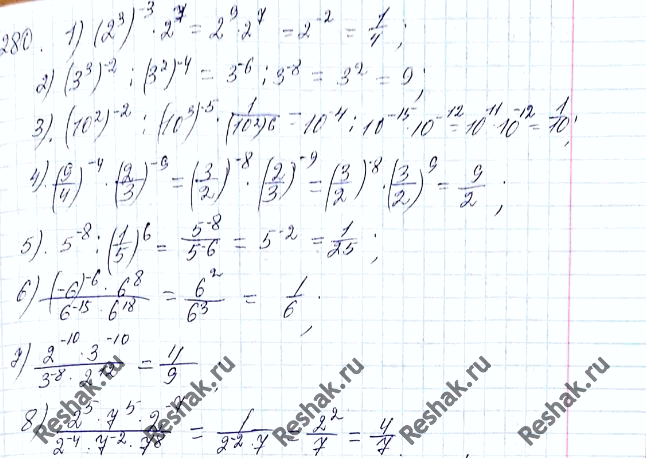 280. 1) (2³)⁻³ · 2⁷ = 2⁹ · 2⁷ = 2⁻² = 1/4;
2) (3³)⁻² : (3²)⁻⁴ = 3⁻⁶ : 3⁻⁸ = 3² = 9;
3). (10²)⁻² : (10³)⁻⁵ · 1/(10²)6 = 10⁻⁴ : 10⁻¹⁵ · 10⁻¹² = 10¹¹ · 10⁻¹² = 1/10;
4). (9/4)⁻⁴ · (2/3)⁻⁹ = (3/2)⁻⁸ · (2/3)⁻⁹ = (3/2)⁻⁸ · (3/2)⁹ = 9/2;
5). 5⁻⁸ : (1/5)⁶ = 5⁻⁸/5⁻⁶ = 5⁻² = 1/25;
6) (-6)⁻⁶ · 6⁸ / 6⁻¹⁵ · 6¹⁸ = 6²/6³ = 1/6;
7) 2⁻¹⁰ · 3⁻¹⁰ / 3⁻⁸ · 2⁻¹² = 4/9
8) 2⁵ · 7⁵ · 2⁻⁷ / 2⁻⁴ · 7⁻² · 7⁸ = 1 / 2⁻² · 7 = 2²/7 = 4/7.
Reshak.ru
Reshak.ru
Reshak.ru
Reshak.ru